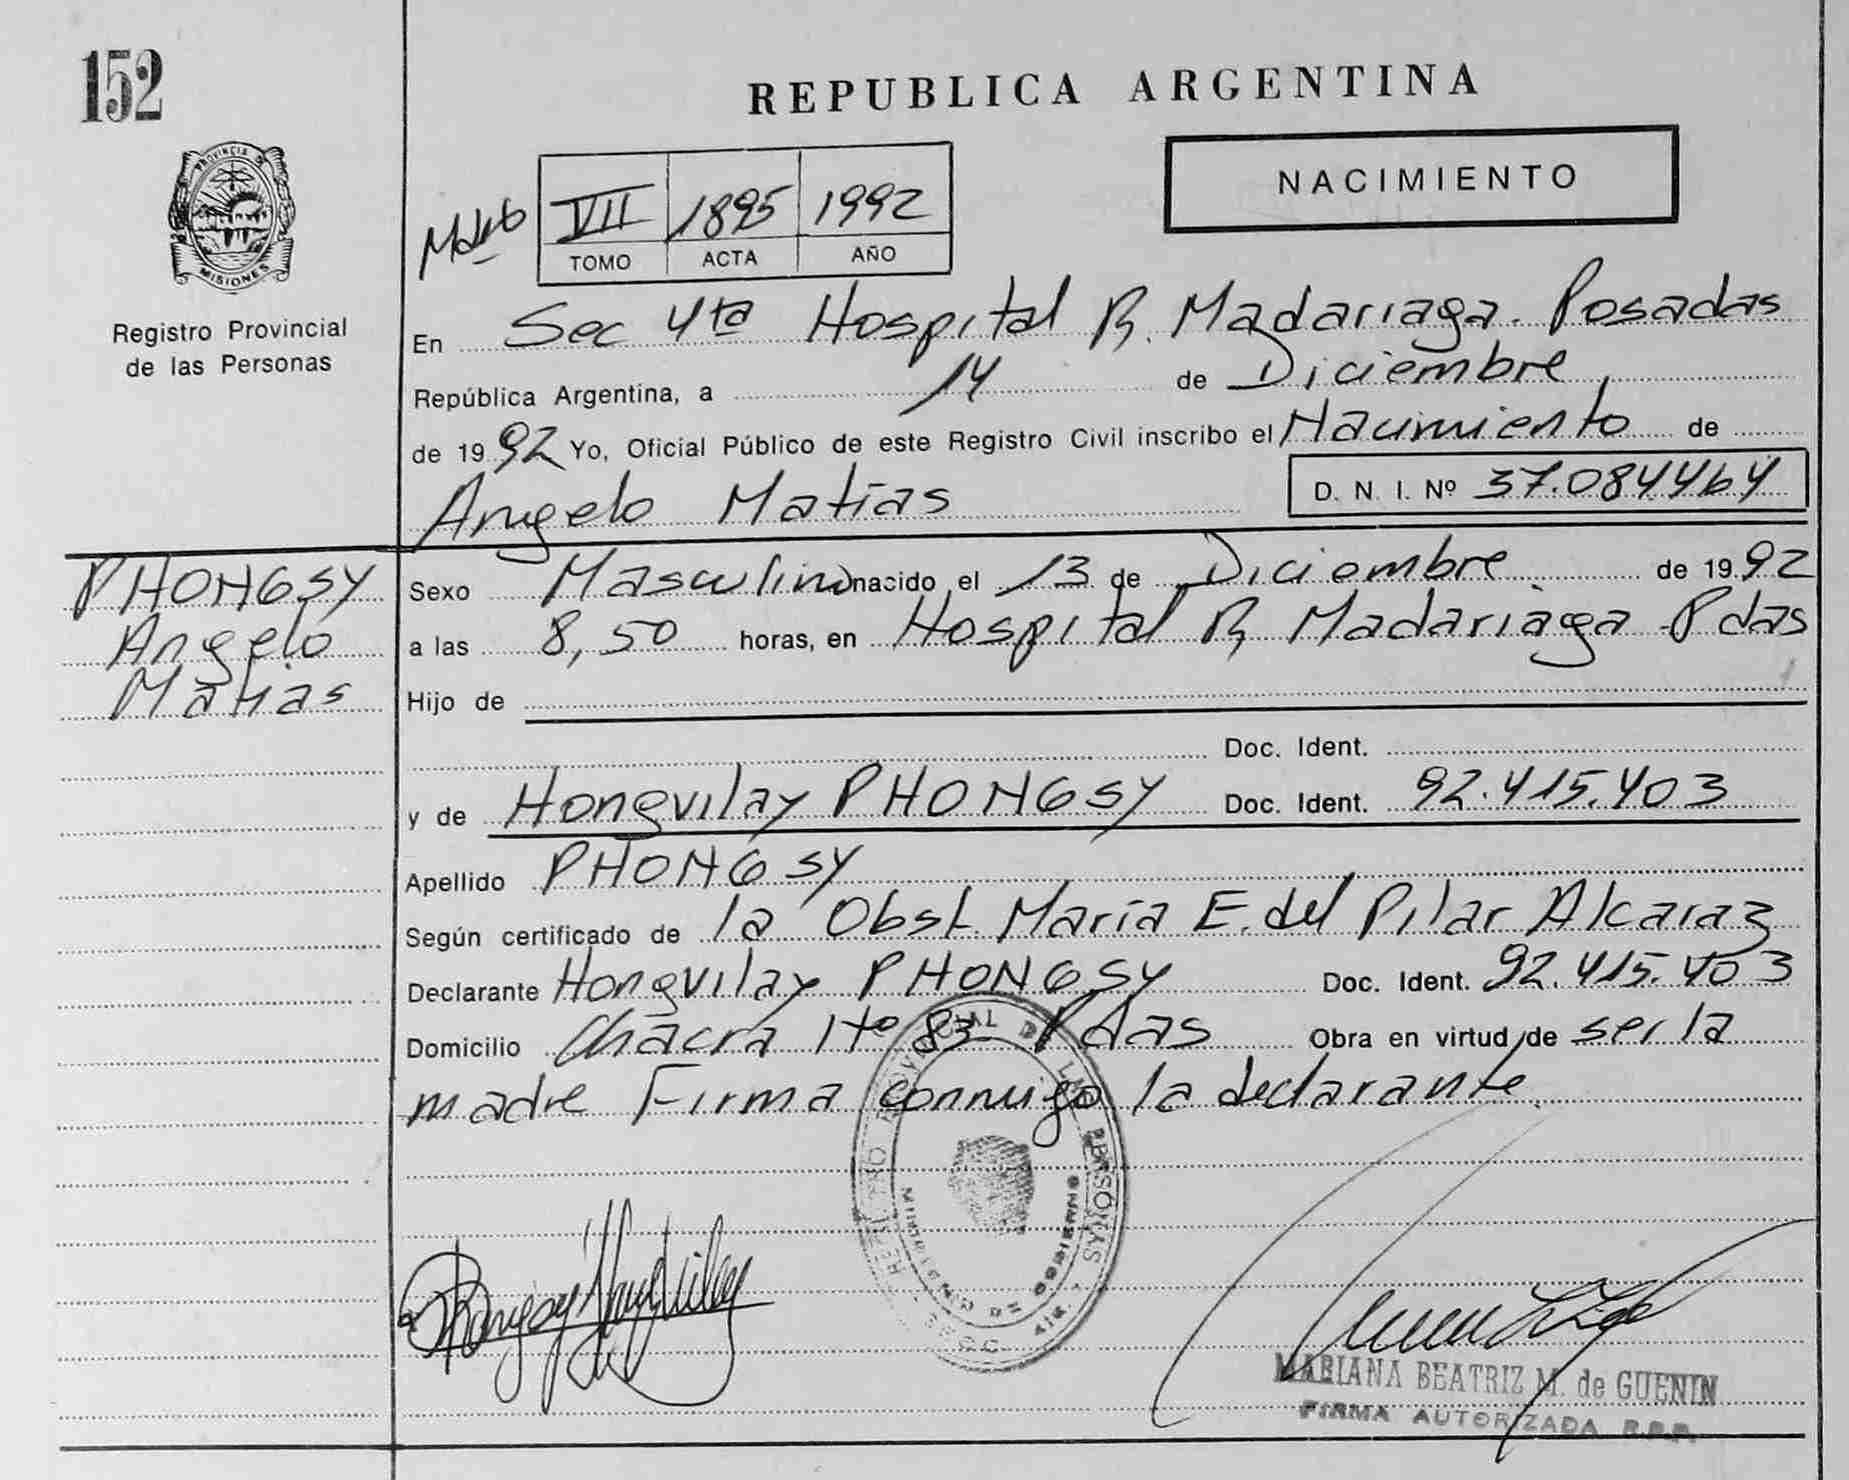 152
REPUBLICA ARGENTINA
NACIMIENTO
VII 1895 1992
TOMO ACTA AÑO
PROVINCIA DE
MISIONES
Registro Provincial
de las Personas
En Sec 4ta Hospital R. Madariaga. Posadas
República Argentina, a 14 de Diciembre
de 1992 Yo, Oficial Público de este Registro Civil inscribo el Nacimiento de
Angelo Matías
D. N. I. Nº 37.084464
PHONGSY
Angelo
Matias
Sexo Masculino nacido el 13 de Diciembre de 1992
a las 8,50 horas, en Hospital R. Madariaga Pdas
Hijo de
Doc. Ident.
y de Hongvilay PHONGSY Doc. Ident. 92.415.403
Apellido PHONGSY
Según certificado de la Obst. María E. del Pilar Alcaraz
Declarante Hongvilay PHONGSY Doc. Ident. 92.415.403
Domicilio Chacra Nº 83 Pdas Obra en virtud de ser la
madre Firma conmigo la declarante.
REGISTRO PROVINCIAL DE LAS PERSONAS
MINISTERIO DE GOBIERNO
Phongsy Hongvilay
MARIANA BEATRIZ M. de GUENIN
FIRMA AUTORIZADA R.P.P.